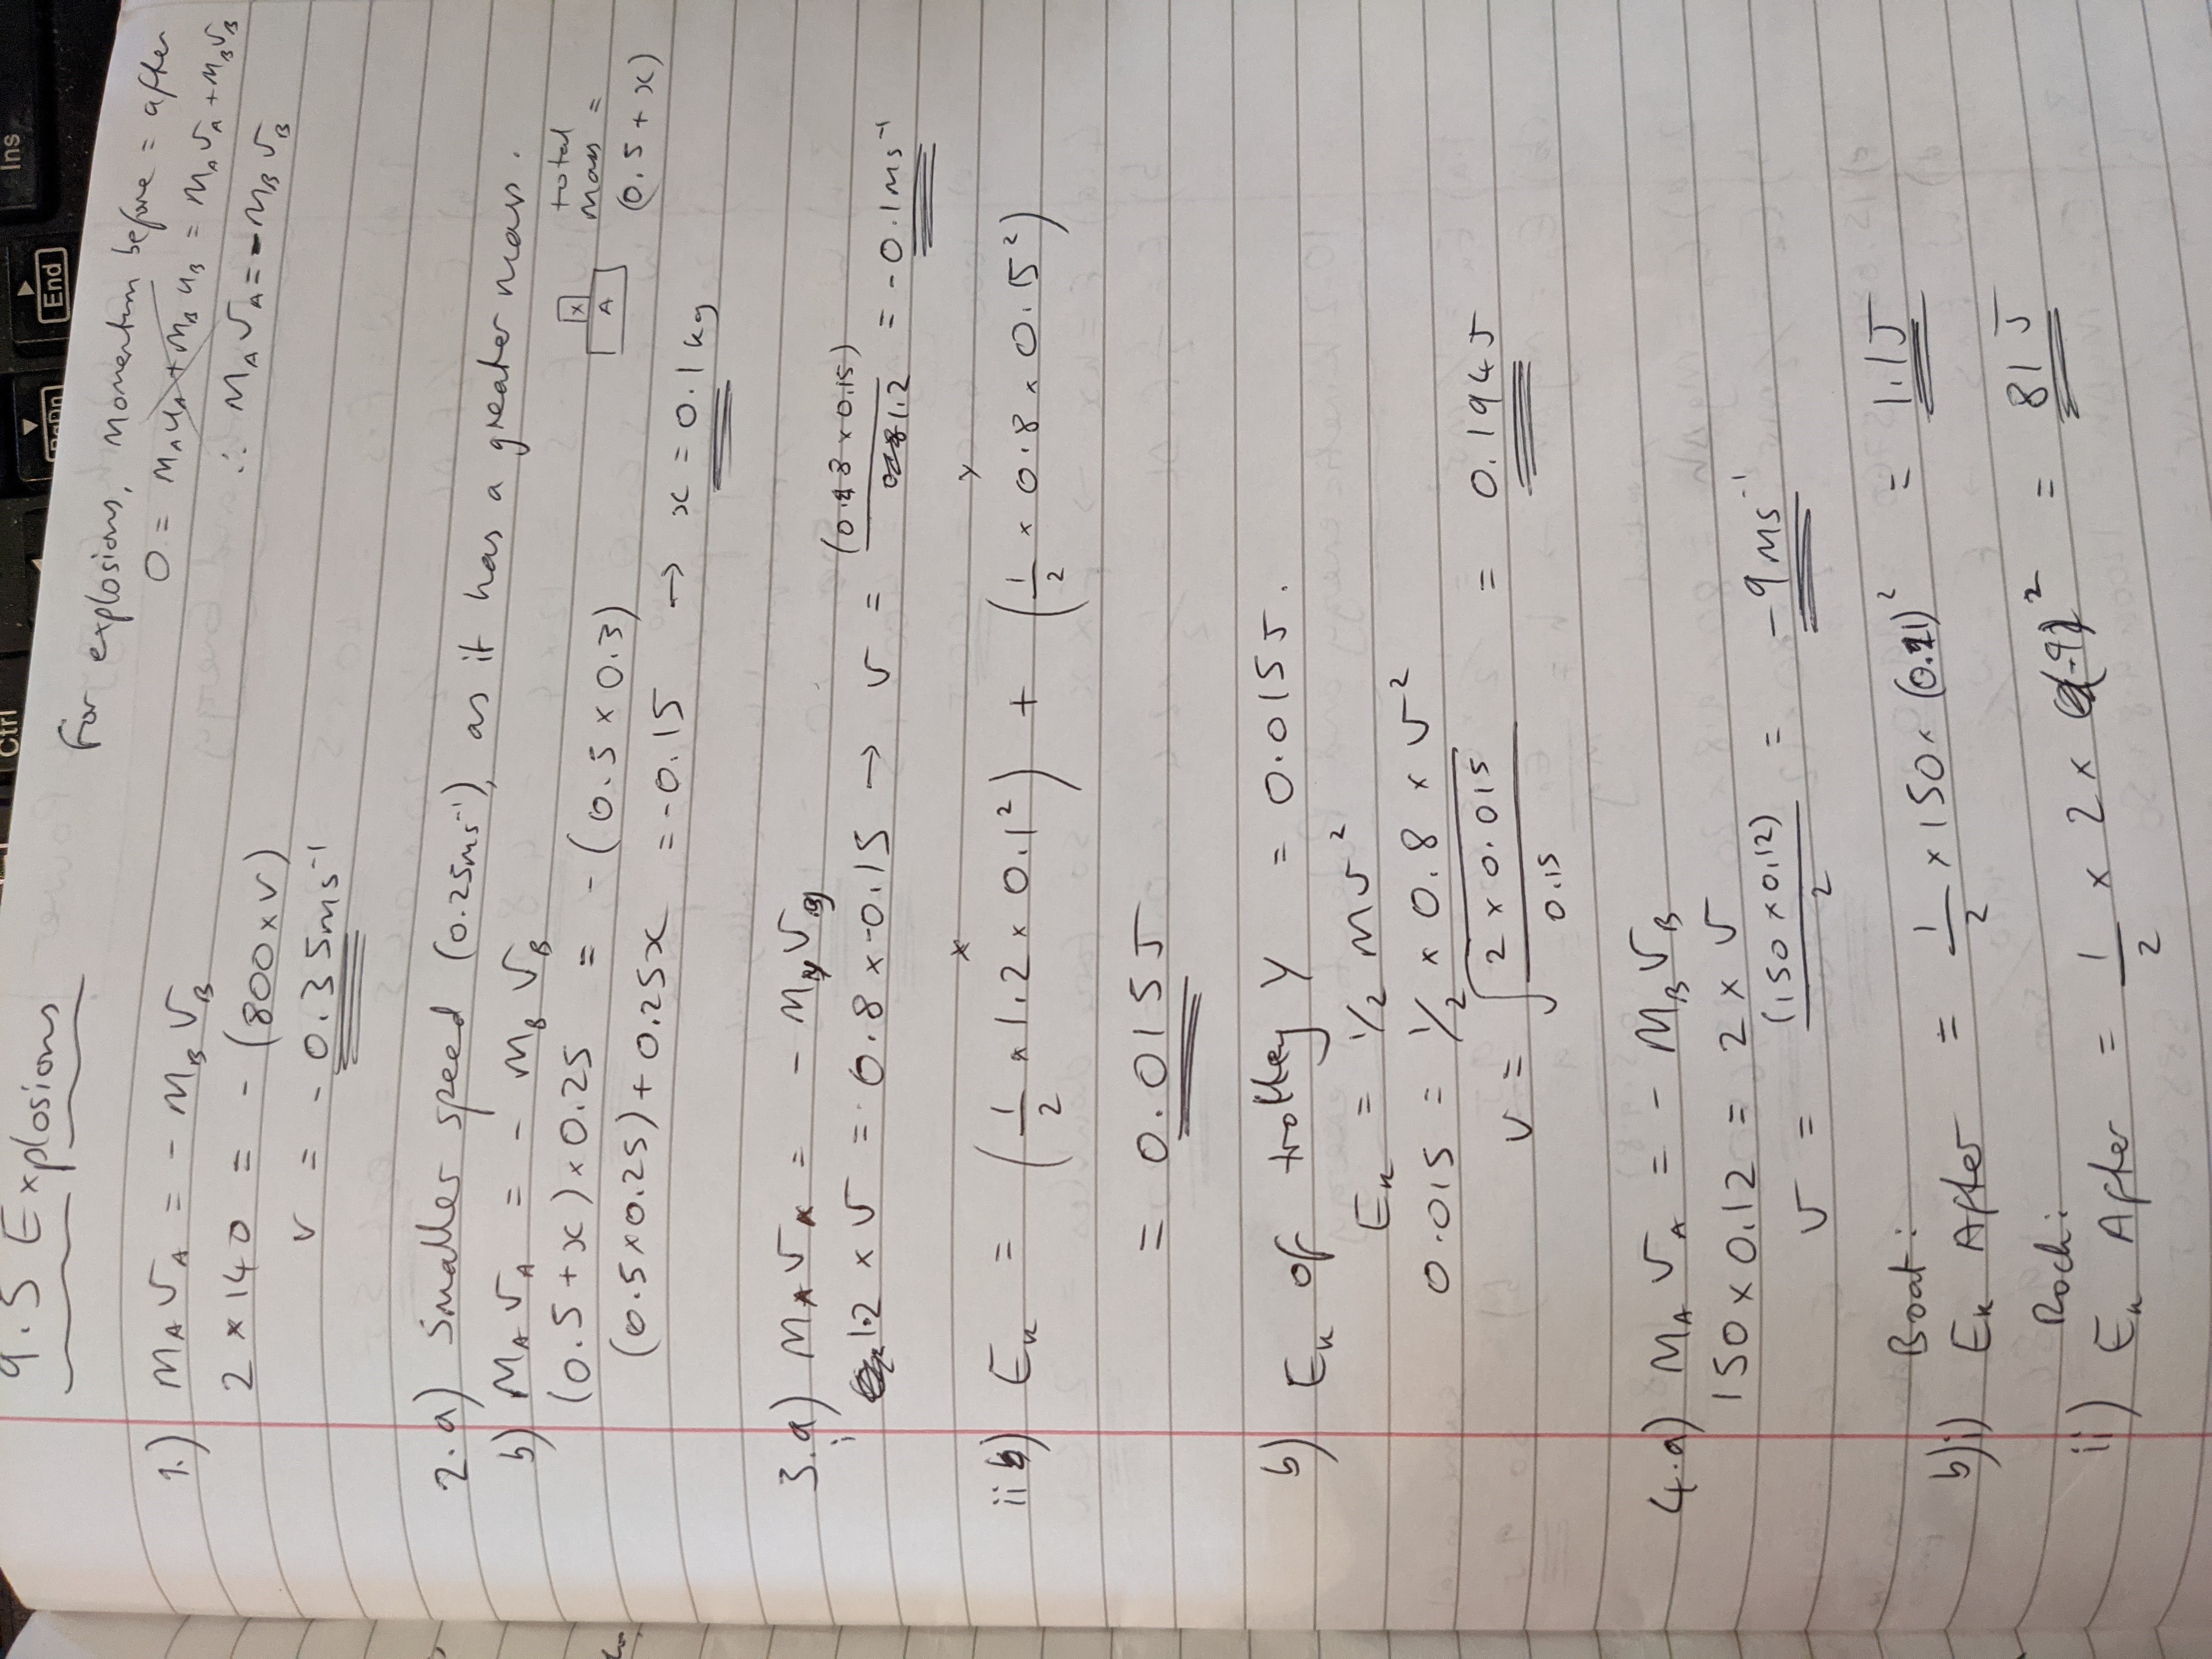 Ctrl
PgDn
End
Ins
9.5 Explosions
For explosions, momentum before = after
0 = mAuA + mBuB = mAvA + mBvB
∴ mAvA = -mBvB
1.) mAvA = - mBvB
2 × 140 = - (800 × v)
v = - 0.35ms⁻¹
2.a) Smaller speed (0.25ms⁻¹), as it has a greater mass.
b) mAvA = - mBvB
x
A
total
mass =
(0.5 + x)
(0.5 + x) × 0.25 = - (0.5 × 0.3)
(0.5 × 0.25) + 0.25x = -0.15 → x = 0.1 kg
3.a) i mxvx = - myvy
1.2 × v = 0.8 × -0.15 → v = (0.8 × 0.15) / 1.2 = -0.1ms⁻¹
x y
ii) Ek = (1/2 × 1.2 × 0.1²) + (1/2 × 0.8 × 0.15²)
= 0.015J
b) Ek of trolley Y = 0.015J.
Ek = 1/2 mv²
0.015 = 1/2 × 0.8 × v²
v = √(2 × 0.015 / 0.15) = 0.194J
4.a) mAvA = - mBvB
150 × 0.12 = 2 × v
v = (150 × 0.12) / 2 = -9ms⁻¹
Boat:
b) i) Ek After = 1/2 × 150 × ²= 1.1J
Rock:
ii) Ek After = 1/2 × 2 × (-9)² = 81J